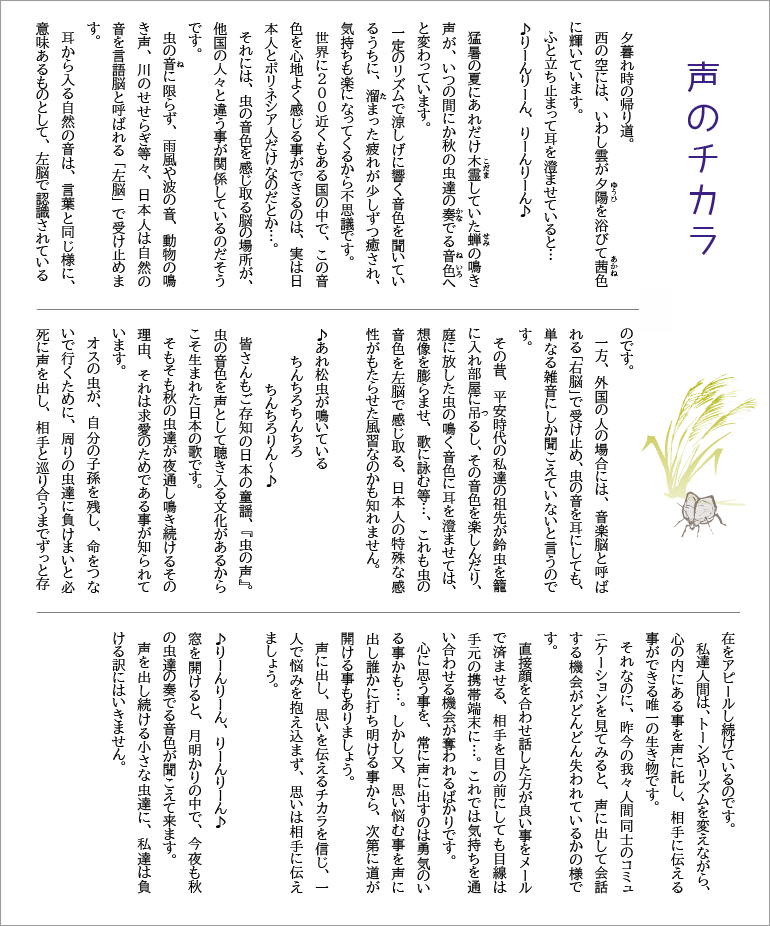 声のチカラ
夕暮れ時の帰り道。
西の空には、いわし雲が夕陽を浴びて茜色
に輝いています。
ふと立ち止まって耳を澄ませていると…
♪りーんりーん、りーんりーん♪
猛暑の夏にあれだけ木霊していた蝉の鳴き
声が、いつの間にか秋の虫達の奏でる音色へ
と変わっています。
一定のリズムで涼しげに響く音色を聞いてい
るうちに、溜まった疲れが少しずつ癒され、
気持ちも楽になってくるから不思議です。
世界に２００近くもある国の中で、この音
色を心地よく感じる事ができるのは、実は日
本人とポリネシア人だけなのだとか…。
それには、虫の音色を感じ取る脳の場所が、
他国の人々と違う事が関係しているのだそう
です。
虫の音に限らず、雨風や波の音、動物の鳴
き声、川のせせらぎ等々、日本人は自然の
音を言語脳と呼ばれる「左脳」で受け止めま
す。
耳から入る自然の音は、言葉と同じ様に、
意味あるものとして、左脳で認識されている
のです。
一方、外国の人の場合には、音楽脳と呼ば
れる「右脳」で受け止め、虫の音を耳にしても、
単なる雑音にしか聞こえていないと言うので
す。
その昔、平安時代の私達の祖先が鈴虫を籠
に入れ部屋に吊るし、その音色を楽しんだり、
庭に放した虫の鳴く音色に耳を澄ませては、
想像を膨らませ、歌に詠む等…、これも虫の
音色を左脳で感じ取る、日本人の特殊な感
性がもたらせた風習なのかも知れません。
♪あれ松虫が鳴いている
ちんちろちんちろ
ちんちろりん～♪
皆さんもご存知の日本の童謡、『虫の声』。
虫の音色を声として聴き入る文化があるから
こそ生まれた日本の歌です。
そもそも秋の虫達が夜通し鳴き続けるその
理由、それは求愛のためである事が知られて
います。
オスの虫が、自分の子孫を残し、命をつな
いで行くために、周りの虫達に負けまいと必
死に声を出し、相手と巡り合うまでずっと存
在をアピールし続けているのです。
私達人間は、トーンやリズムを変えながら、
心の内にある事を声に託し、相手に伝える
事ができる唯一の生き物です。
それなのに、昨今の我々人間同士のコミュ
ニケーションを見てみると、声に出して会話
する機会がどんどん失われているかの様で
す。
直接顔を合わせ話した方が良い事をメール
で済ませる、相手を目の前にしても目線は
手元の携帯端末に…。これでは気持ちを通
い合わせる機会が奪われるばかりです。
心に思う事を、常に声に出すのは勇気のい
る事かも…。しかし又、思い悩む事を声に
出し誰かに打ち明ける事から、次第に道が
開ける事もありましょう。
声に出し、思いを伝えるチカラを信じ、一
人で悩みを抱え込まず、思いは相手に伝え
ましょう。
♪りーんりーん、りーんりーん♪
窓を開けると、月明かりの中で、今夜も秋
の虫達の奏でる音色が聞こえて来ます。
声を出し続ける小さな虫達に、私達は負
ける訳にはいきません。